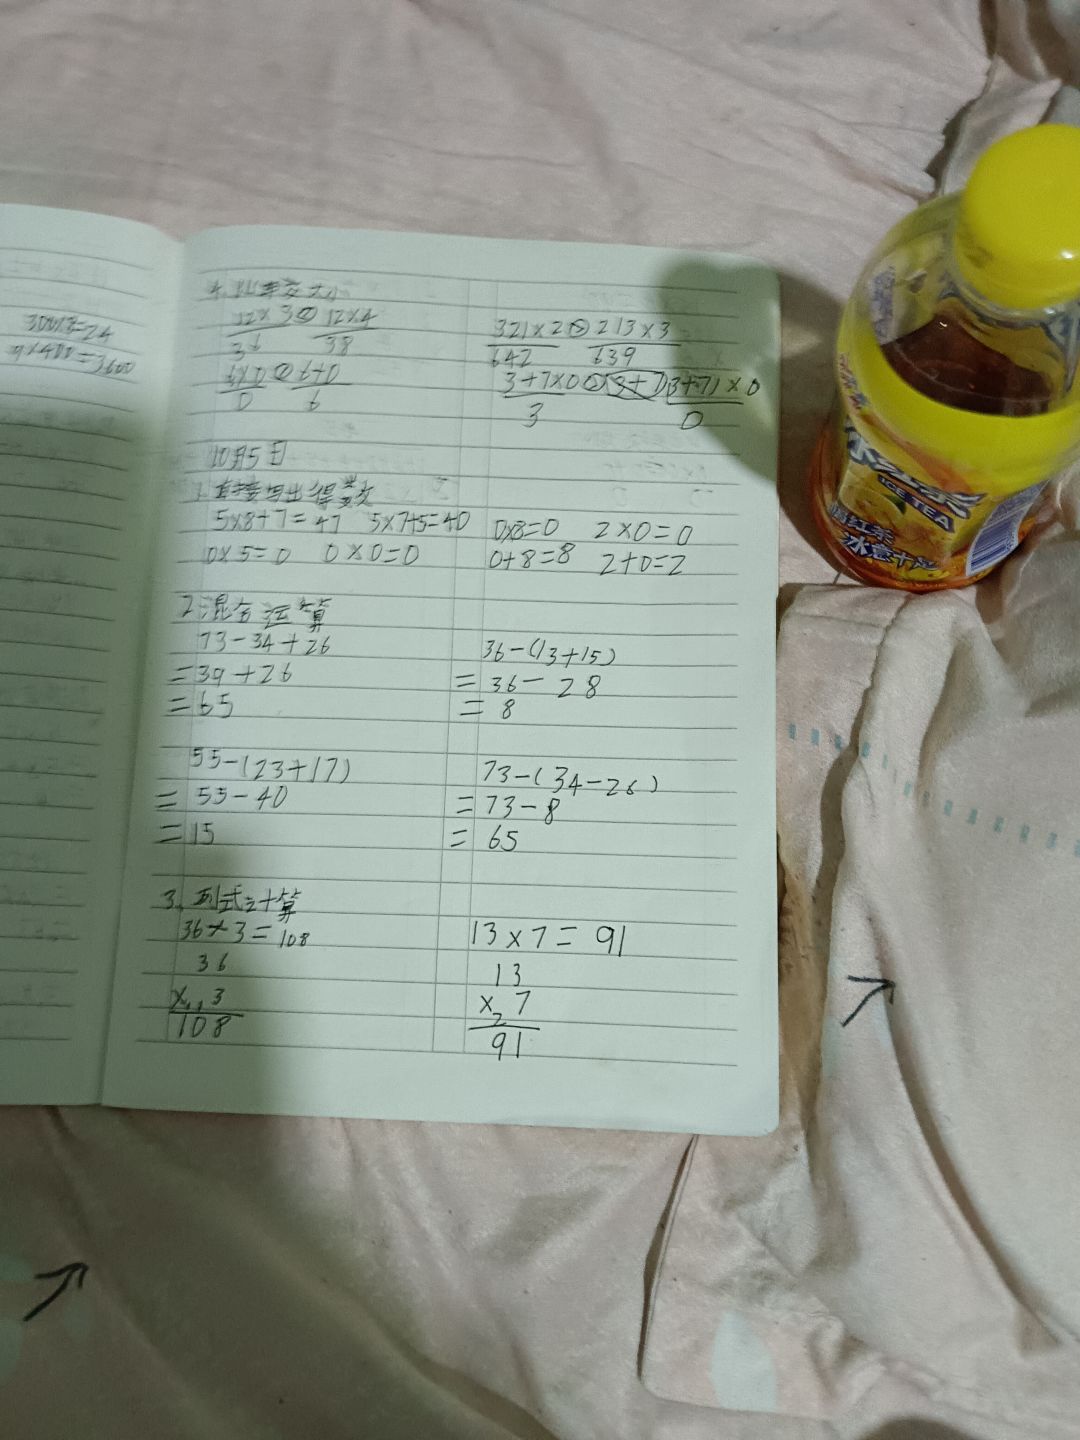 300×8=24
9×400=3600
4.比较大小
12×3<12×4
36 38
6×0<6+0
0 6
321×2>213×3
642 639
3+7×0>(3+7)×0
3 0
10月5日
1.直接写出得数
5×8+7=47 5×7+5=40 0×8=0 2×0=0
0×5=0 0×0=0 0+8=8 2+0=2
2.混合运算
73-34+26
=39+26
=65
36-(13+15)
=36-28
=8
55-(23+17)
=55-40
=15
73-(34-26)
=73-8
=65
3.列式计算
36×3=108
36
× 3
108
13×7=91
13
×2 7
91
ICE TEA
红茶